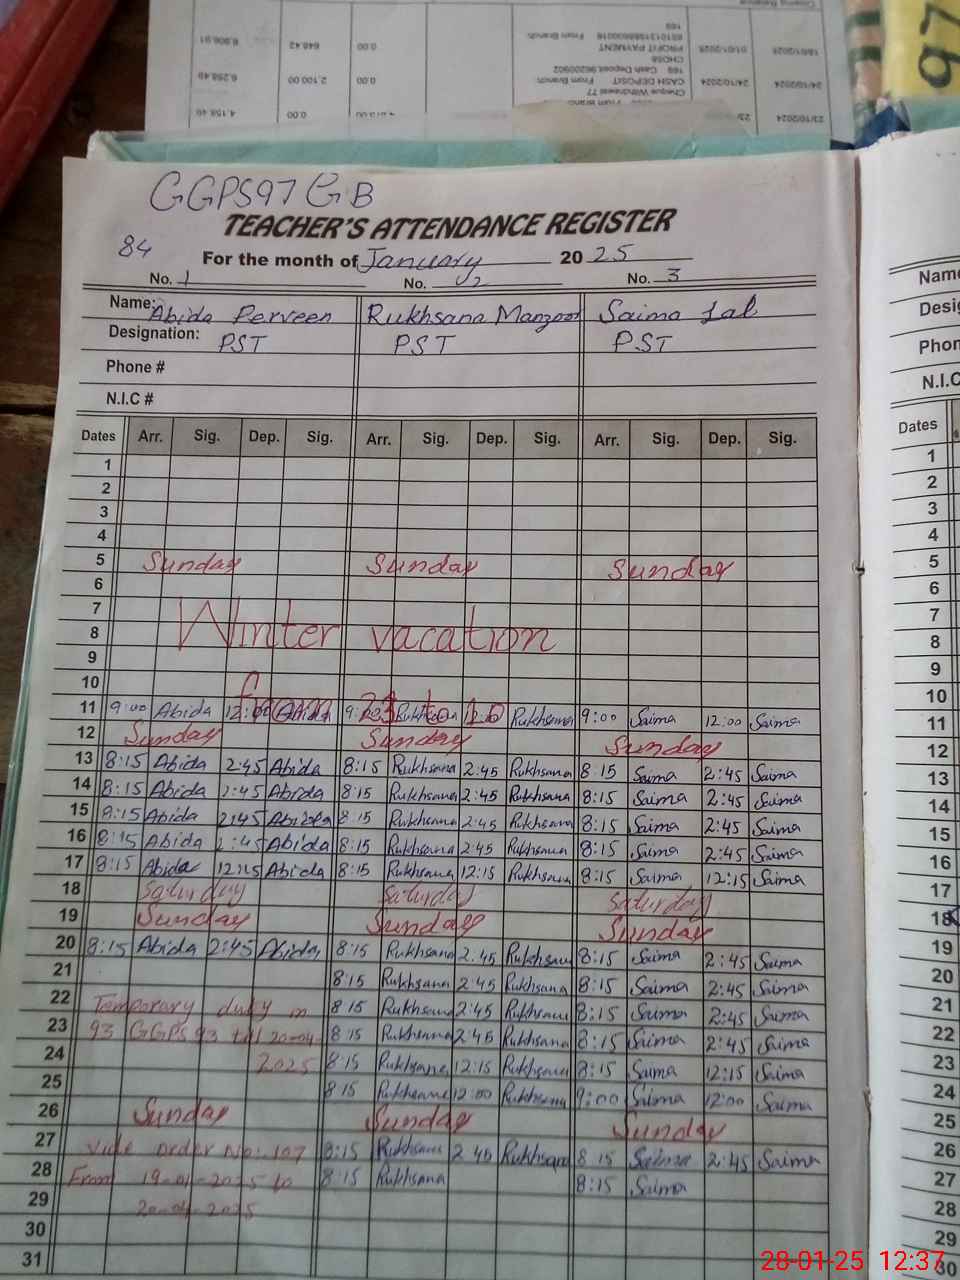 18/01/2025 01/01/2025 PROFIT PAYMENT 0.00 648.42 6,906.91
CHO58
24/10/2024 24/10/2024 CASH DEPOSIT From Branch: 0.00 2,100.00 6,258.49
Cheque Withdrawal 77
23/10/2024 0.00 4,158.49
97
GGPS 97 GB
TEACHER'S ATTENDANCE REGISTER
84
For the month of January 2025
No. 1 No. 2 No. 3
Name: Abida Perveen Rukhsana Manzoor Saima Lal
Designation: PST PST PST
Phone #
N.I.C #
Dates Arr. Sig. Dep. Sig. Arr. Sig. Dep. Sig. Arr. Sig. Dep. Sig.
1
2
3
4
5 Sunday Sunday Sunday
6
7
8 Winter vacation
9
10 from
11 9:00 Abida 12:00 Abida Rukhsana Rukhsana 9:00 Saima 12:00 Saima
12 Sunday Sunday Sunday
13 8:15 Abida 2:45 Abida 8:15 Rukhsana 2:45 Rukhsana 8:15 Saima 2:45 Saima
14 8:15 Abida 2:45 Abida 8:15 Rukhsana 2:45 Rukhsana 8:15 Saima 2:45 Saima
15 8:15 Abida 2:45 Abida 8:15 Rukhsana 2:45 Rukhsana 8:15 Saima 2:45 Saima
16 8:15 Abida 2:45 Abida 8:15 Rukhsana 2:45 Rukhsana 8:15 Saima 2:45 Saima
17 8:15 Abida 12:15 Abida 8:15 Rukhsana 12:15 Rukhsana 8:15 Saima 12:15 Saima
18 Saturday Saturday Saturday
19 Sunday Sunday Sunday
20 8:15 Abida 2:45 Abida 8:15 Rukhsana 2:45 Rukhsana 8:15 Saima 2:45 Saima
21 8:15 Rukhsana 2:45 Rukhsana 8:15 Saima 2:45 Saima
22 Temporary duty in 8:15 Rukhsana 2:45 Rukhsana 8:15 Saima 2:45 Saima
23 93 GGPS 93 till 20-04 8:15 Rukhsana 2:45 Rukhsana 8:15 Saima 2:45 Saima
24 2025 8:15 Rukhsana 12:15 Rukhsana 8:15 Saima 12:15 Saima
25 8:15 Rukhsana 12:00 Rukhsana 9:00 Saima 12:00 Saima
26 Sunday Sunday Sunday
27 Vide order No: 107 8:15 Rukhsana 2:45 Rukhsana 8:15 Saima 2:45 Saima
28 From 19-01-2025 to 8:15 Rukhsana 8:15 Saima
29 20-04-2025
30
31
Name
Phon
N.I.C
Dates
1
2
3
4
5
6
7
8
9
10
11
12
13
14
15
16
17
18
19
20
21
22
23
24
25
26
27
28
29
30
28-01-25 12:37